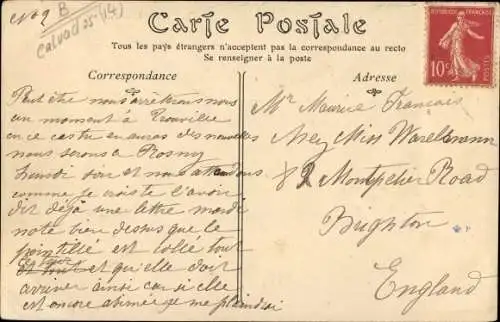 No 9 B
Calvados (14)
Carte Postale
Tous les pays étrangers n'acceptent pas la correspondance au recto
Se renseigner à la poste
Correspondance
Adresse
RÉPUBLIQUE FRANÇAISE
10c
POSTES
Peut être nous arrêterons nous
un moment à Trouville
en ce cas tu en auras des nouvelles
nous serons à Rosny
lundi soir et nous attendons
comme je crois te l'avoir
dit déjà une lettre mardi
note bien dessus que le
pointillé est collé tout
et tout et qu'elle doit
arriver ainsi car si elle
est encore abimée je me plaindrai
Mr Maurice François
Miss
82 Montpelier Road
Brighton
England